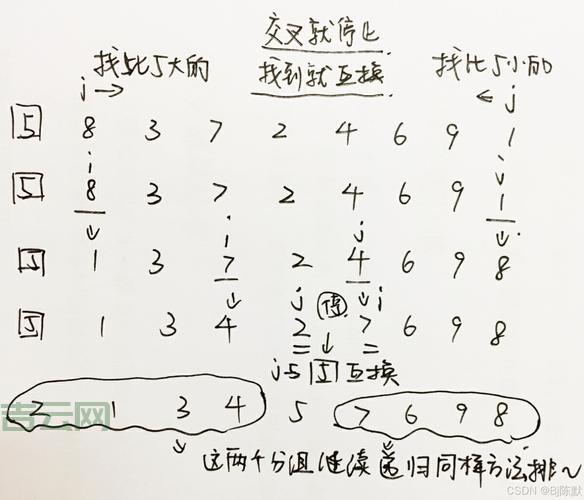 交叉就停止
找比5大的 找到就互换 找比5小的
i→ ←j
5 8 3 7 2 4 6 9 1
i j
5 8 3 7 2 4 6 9 1
↓ i j ↓
5 1 3 7 2 4 6 9 8
↓ j 停 ↓ i
5 1 3 4 2 7 6 9 8
= ↓ =
j与5互换
2 1 3 4 5 7 6 9 8
这两个分组继续递归同样方法排~
吉云网
CSDN @Bj陈默